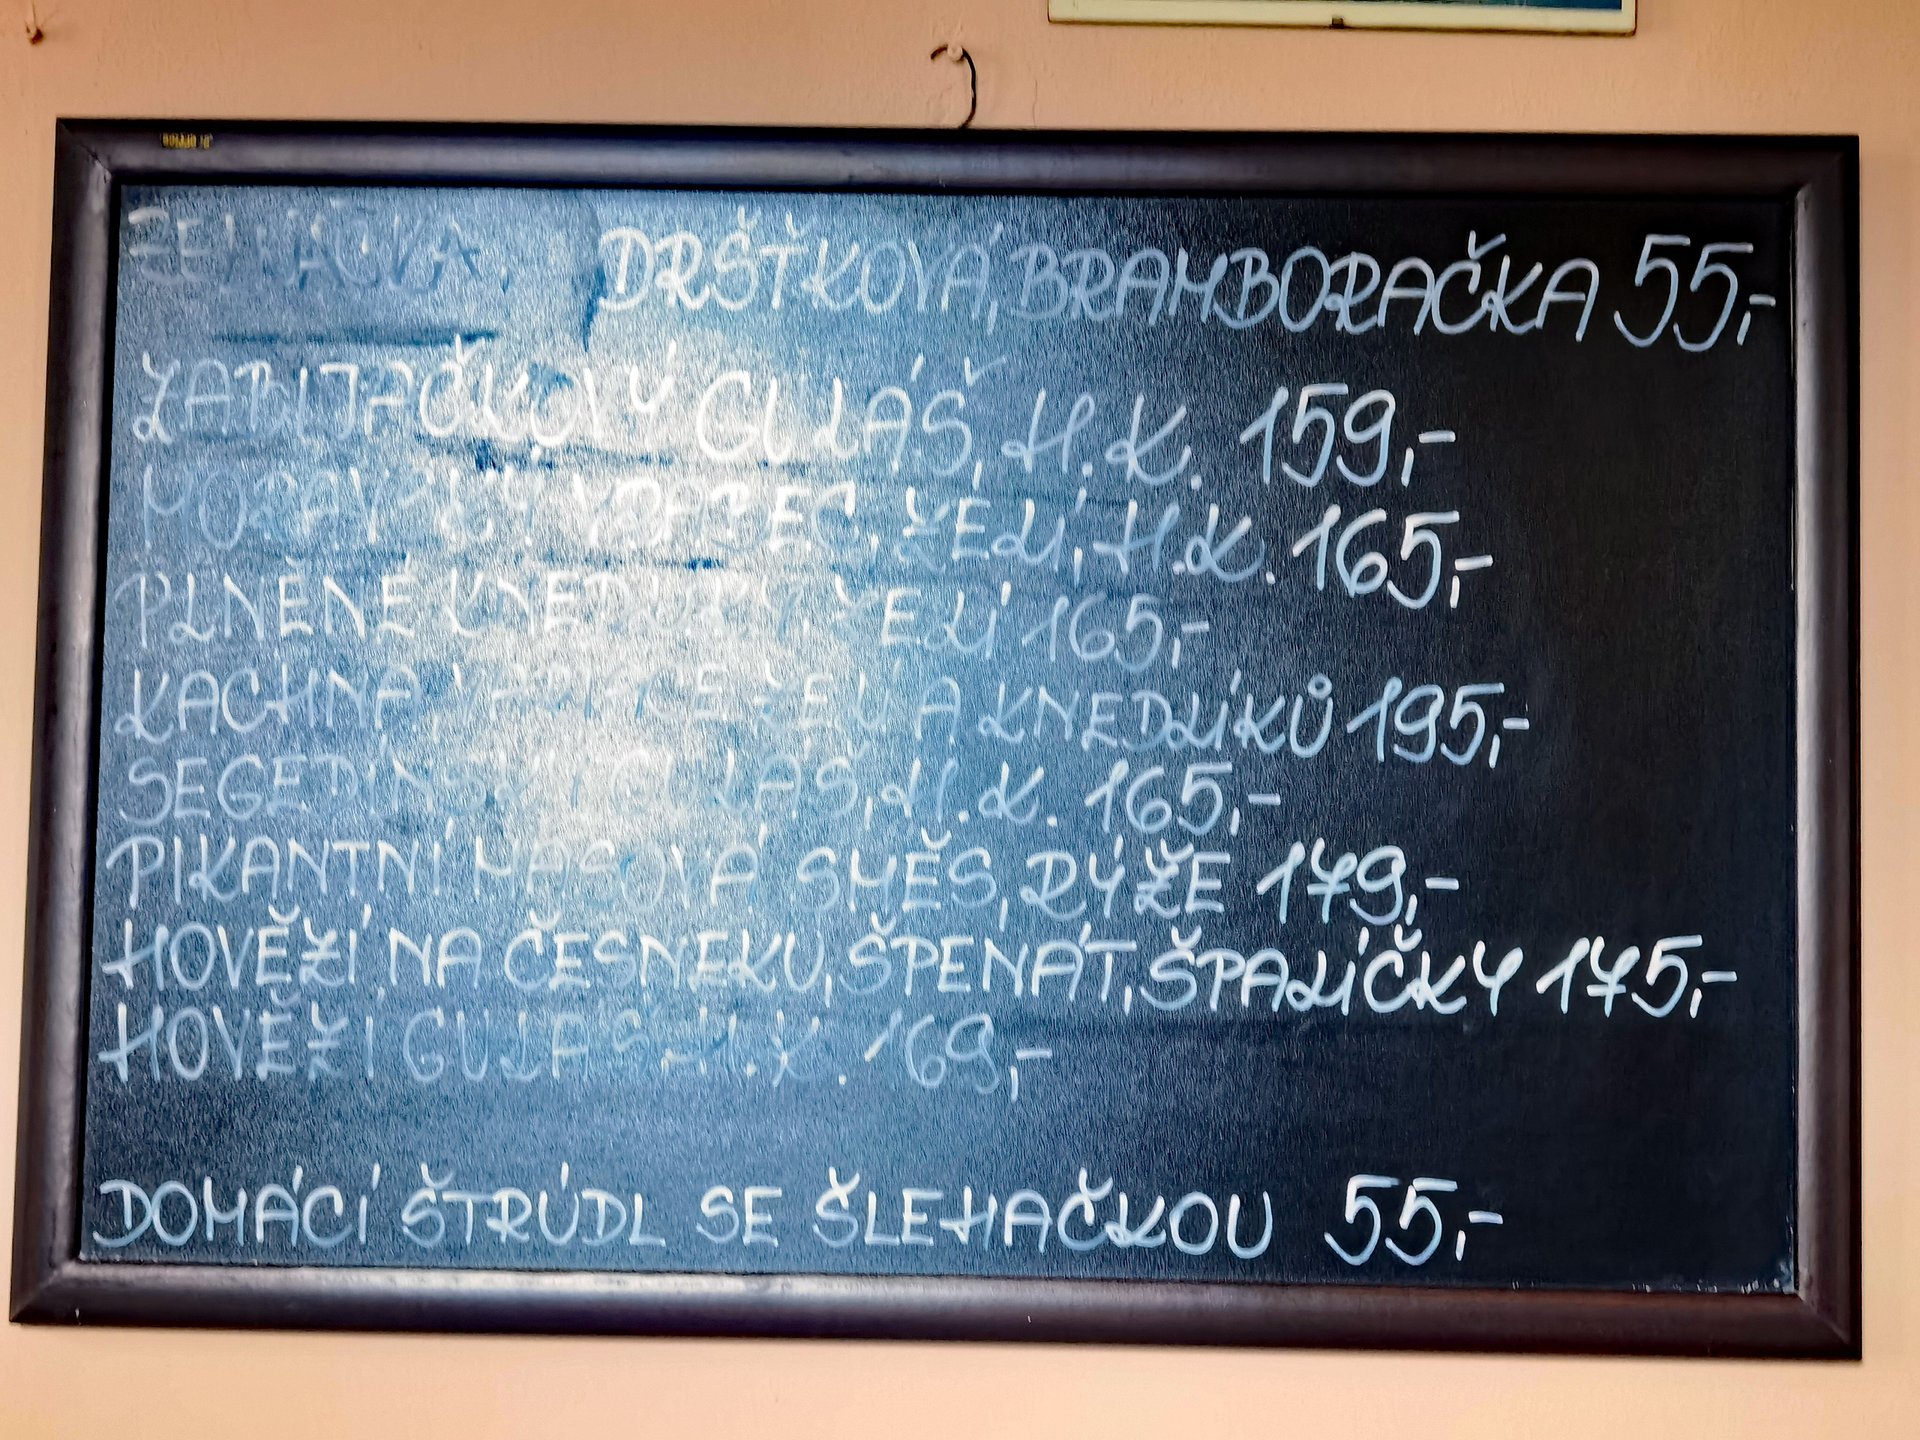 DRŠŤKOVÁ, BRAMBORAČKA 55,-
ZABIJAČKOVÝ GULÁŠ, H.K. 159,-
MORAVSKÝ VRABEC, ZELÍ, H.K. 165,-
PLNĚNÉ KNEDLÍKY, ZELÍ 165,-
KACHNA, VARIACE ZELÍ A KNEDLÍKŮ 195,-
SEGEDÍNSKÝ GULÁŠ, H.K. 165,-
PIKANTNÍ MASOVÁ SMĚS, RÝŽE 179,-
HOVĚZÍ NA ČESNEKU, ŠPENÁT, ŠPALÍČKY 175,-
HOVĚZÍ GULÁŠ, H.K. 169,-
DOMÁCÍ ŠTRÚDL SE ŠLEHAČKOU 55,-